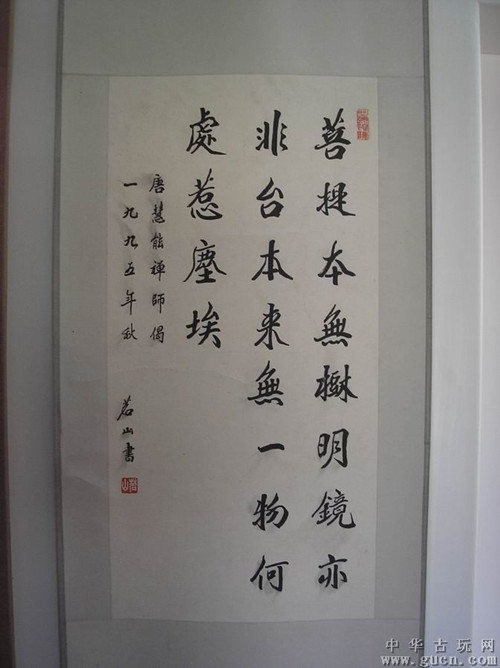 菩提本無樹明鏡亦
非台本来無一物何
處惹塵埃
唐慧能禅師偈
一九九五年秋
若山書
中华古玩网
www.gucn.com